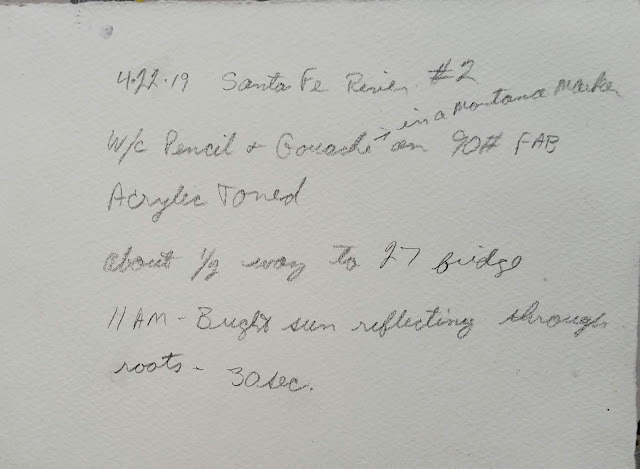 4.22.19 Santa Fe River #2
→ in a Montana Marker
W/c Pencil + Gouache on 90# FAB
Acrylic Toned
about 1/2 way to 27 bridge
11 AM - Bright sun reflecting through
roots - 30 sec.